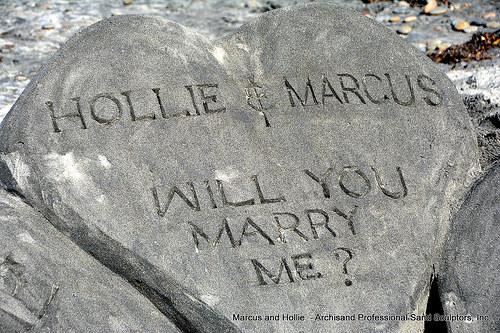 HOLLIE & MARCUS
WILL YOU
MARRY
ME?
Marcus and Hollie - Archisand Professional Sand Sculptors, Inc.